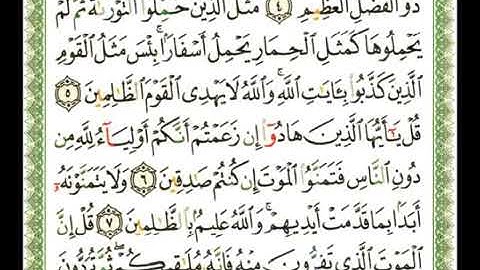 ذُو الْفَضْلِ الْعَظِيمِ ٤ مَثَلُ الَّذِينَ حُمِّلُوا التَّوْرَىٰةَ ثُمَّ لَمْ
يَحْمِلُوهَا كَمَثَلِ الْحِمَارِ يَحْمِلُ أَسْفَارًا ۚ بِئْسَ مَثَلُ الْقَوْمِ
الَّذِينَ كَذَّبُوا بِـَٔايَٰتِ اللَّهِ ۚ وَاللَّهُ لَا يَهْدِى الْقَوْمَ الظَّٰلِمِينَ ٥
قُلْ يَٰٓأَيُّهَا الَّذِينَ هَادُوٓا إِن زَعَمْتُمْ أَنَّكُمْ أَوْلِيَآءُ لِلَّهِ مِن
دُونِ النَّاسِ فَتَمَنَّوُا الْمَوْتَ إِن كُنتُمْ صَٰدِقِينَ ٦ وَلَا يَتَمَنَّوْنَهُۥٓ
أَبَدًۢا بِمَا قَدَّمَتْ أَيْدِيهِمْ ۚ وَاللَّهُ عَلِيمٌۢ بِالظَّٰلِمِينَ ٧ قُلْ إِنَّ
الْمَوْتَ الَّذِى تَفِرُّونَ مِنْهُ فَإِنَّهُۥ مُلَٰقِيكُمْ ۖ ثُمَّ تُرَدُّونَ